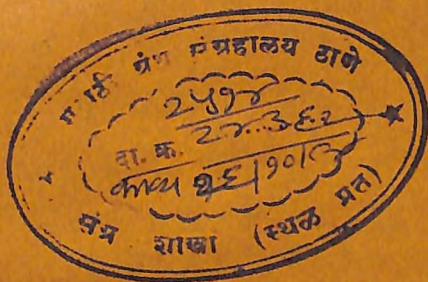 मराठी ग्रंथ संग्रहालय ठाणे
२५१४
दा. क्र. २४.३६२
काव्य
ग्रंथ शाखा (स्थळ प्रत)